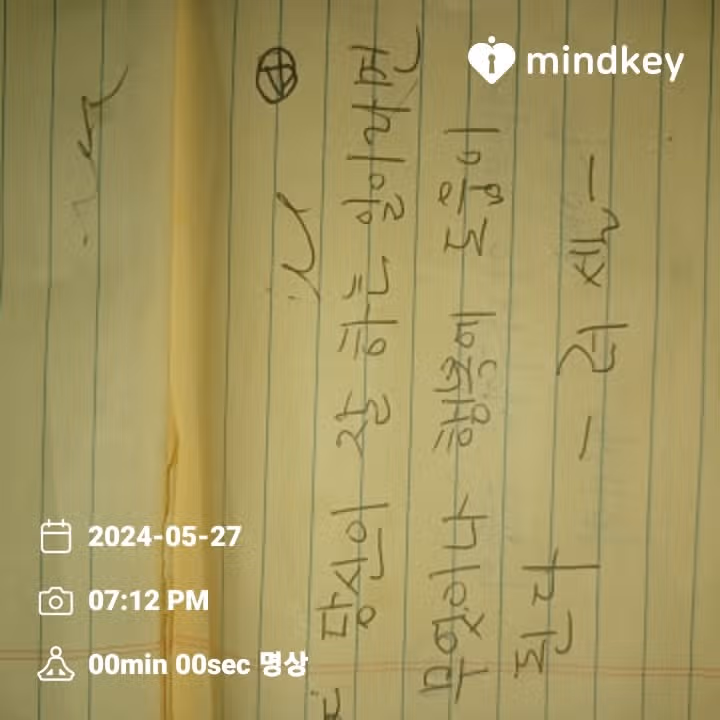 mindkey
당신이 잘 하는 일이라면
무엇이나 행복에 도움이
된다
2024-05-27
07:12 PM
00min 00sec 명상